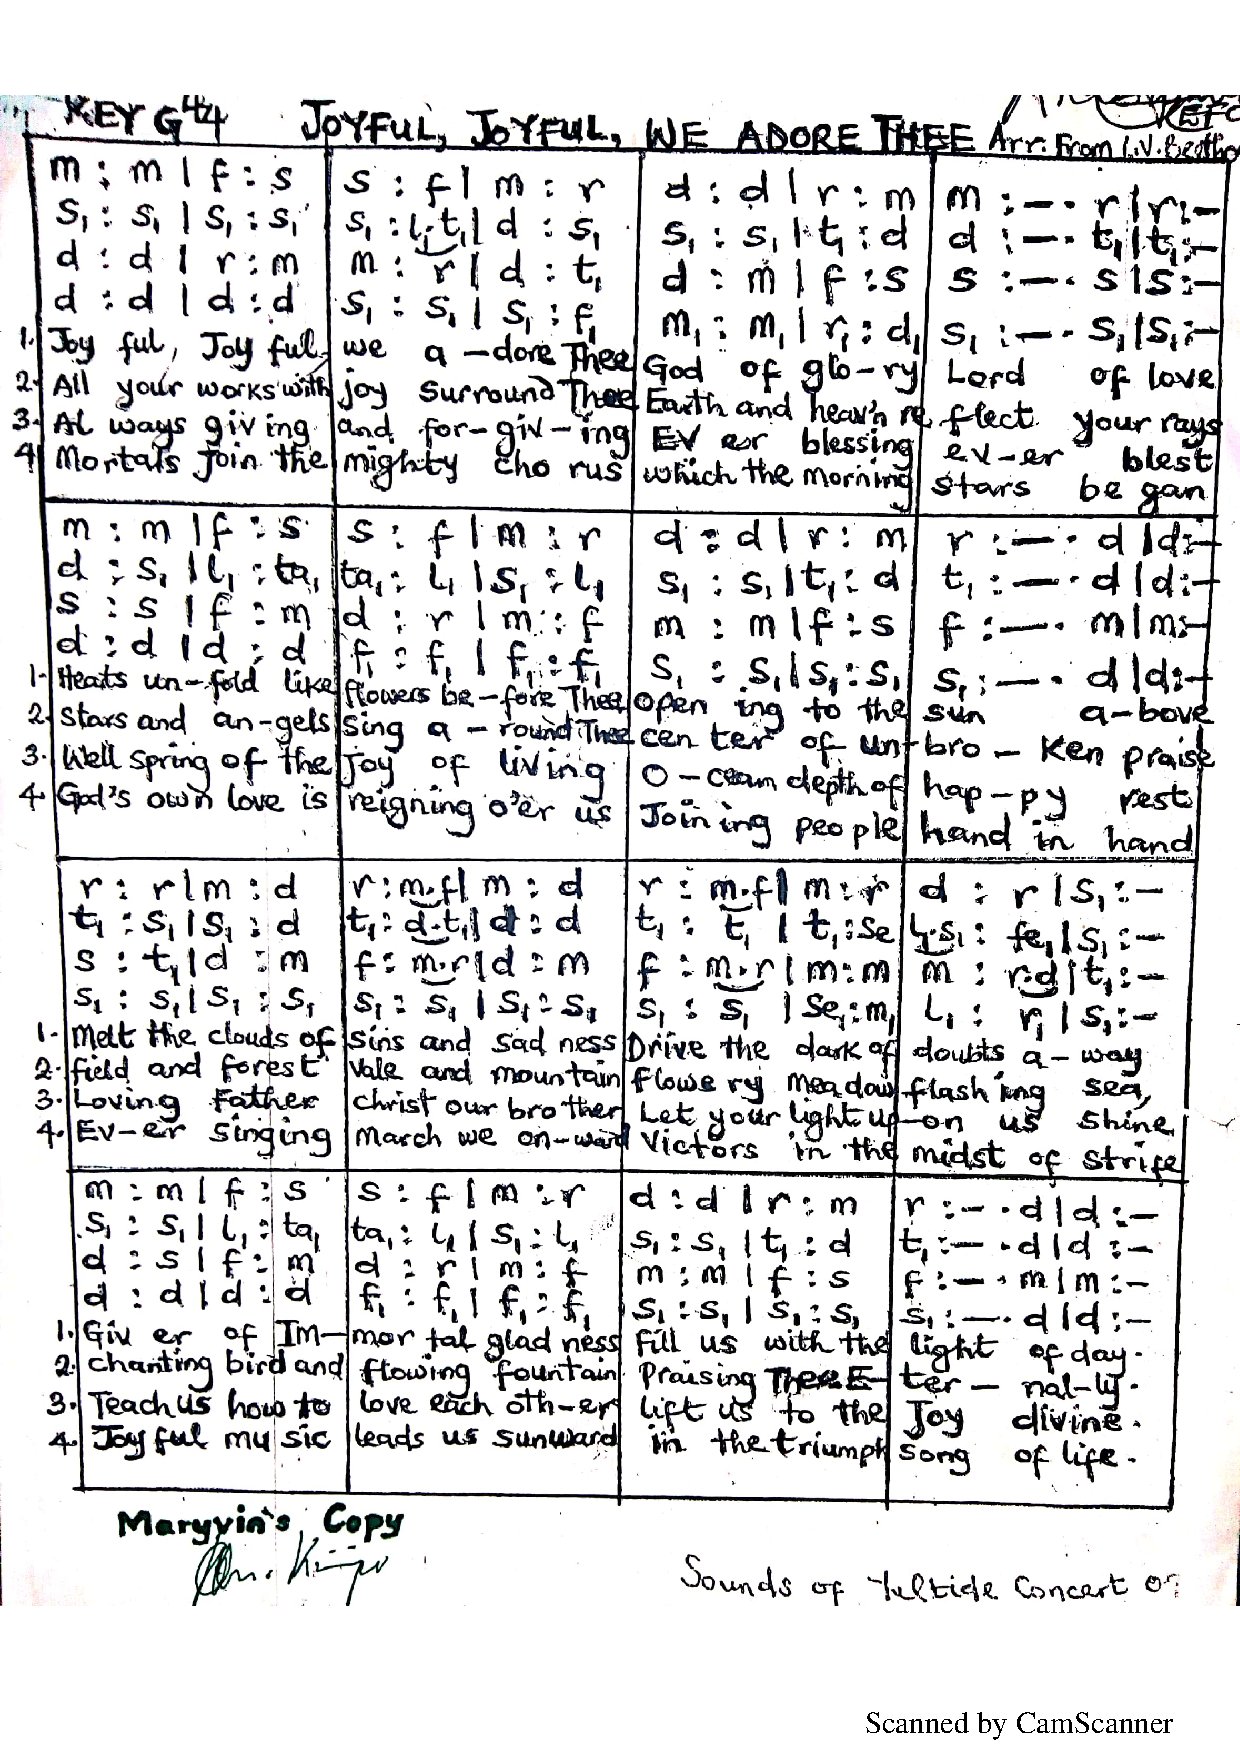 KEY G 44 JOYFUL, JOYFUL, WE ADORE THEE Arr. From L.V. Beetho
m : m | f : s   s : f | m : r   d : d | r : m   m : — . r | r : —
s₁ : s₁ | s₁ : s₁   s₁ : l₁.t₁ | d : s₁   s₁ : s₁ | t₁ : d   d : — . t₁ | t₁ : —
d : d | r : m   m : r | d : t₁   d : m | f : s   s : — . s | s : —
d : d | d : d   s₁ : s₁ | s₁ : f₁   m₁ : m₁ | r₁ : d₁   s₁ : — . s₁ | s₁ : —
1. Joy ful, Joy ful, we a – dore Thee God of glo – ry Lord of love
2. All your works with joy surround Thee Earth and heav'n re flect your rays
3. AL ways giv ing and for – giv – ing EV er blessing ev – er blest
4 Mortals join the mighty cho rus which the morning stars be gan
m : m | f : s   s : f | m : r   d : d | r : m   r : — . d | d : —
d : s₁ | l₁ : ta₁   ta₁ : l₁ | s₁ : l₁   s₁ : s₁ | t₁ : d   t₁ : — . d | d : —
s : s | f : m   d : r | m : f   m : m | f : s   f : — . m | m : —
d : d | d : d   f₁ : f₁ | f₁ : f₁   s₁ : s₁ | s₁ : s₁   s₁ : — . d | d : —
1. Heats un – fold like flowers be – fore Thee open ing to the sun a – bove
2. Stars and an – gels sing a – round Thee cen ter of un – bro – ken praise
3. Well spring of the joy of living O – ceam depth of hap – py rest
4. God's own love is reigning o'er us Joining people hand in hand
r : r | m : d   r : m.f | m : d   r : m.f | m : r   d : r | s₁ : —
t₁ : s₁ | s₁ : d   t₁ : d.t₁ | d : d   t₁ : t₁ | t₁ : se   l₁.s₁ : fe₁ | s₁ : —
s : t₁ | d : m   f : m.r | d : m   f : m.r | m : m   m : r.d | t₁ : —
s₁ : s₁ | s₁ : s₁   s₁ : s₁ | s₁ : s₁   s₁ : s₁ | se₁ : m₁   l₁ : r₁ | s₁ : —
1. Melt the clouds of sins and sad ness Drive the dark of doubts a – way
2. field and forest vale and mountain flowe ry meadow flash ing sea,
3. Loving Father christ our brother Let your light up – on us shine
4. Ev – er singing march we on – ward victors in the midst of strife
m : m | f : s   s : f | m : r   d : d | r : m   r : — . d | d : —
s₁ : s₁ | l₁ : ta₁   ta₁ : l₁ | s₁ : l₁   s₁ : s₁ | t₁ : d   t₁ : — . d | d : —
d : s | f : m   d : r | m : f   m : m | f : s   f : — . m | m : —
d : d | d : d   f₁ : f₁ | f₁ : f₁   s₁ : s₁ | s₁ : s₁   s₁ : — . d | d : —
1. Giv er of Im – mor tal glad ness Fill us with the light of day.
2. chanting bird and flowing fountain Praising Thee E – ter – nal – ly.
3. Teach us how to love each oth – er lift us to the Joy divine.
4. Joy ful mu sic leads us sunward in the triumph song of life.
Maryvin's Copy
Sounds of Yuletide Concert
Scanned by CamScanner